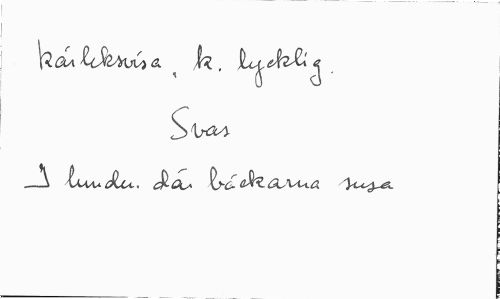 Kärleksvisa, k. lycklig.
Svas
I lunden där bäckarna susa